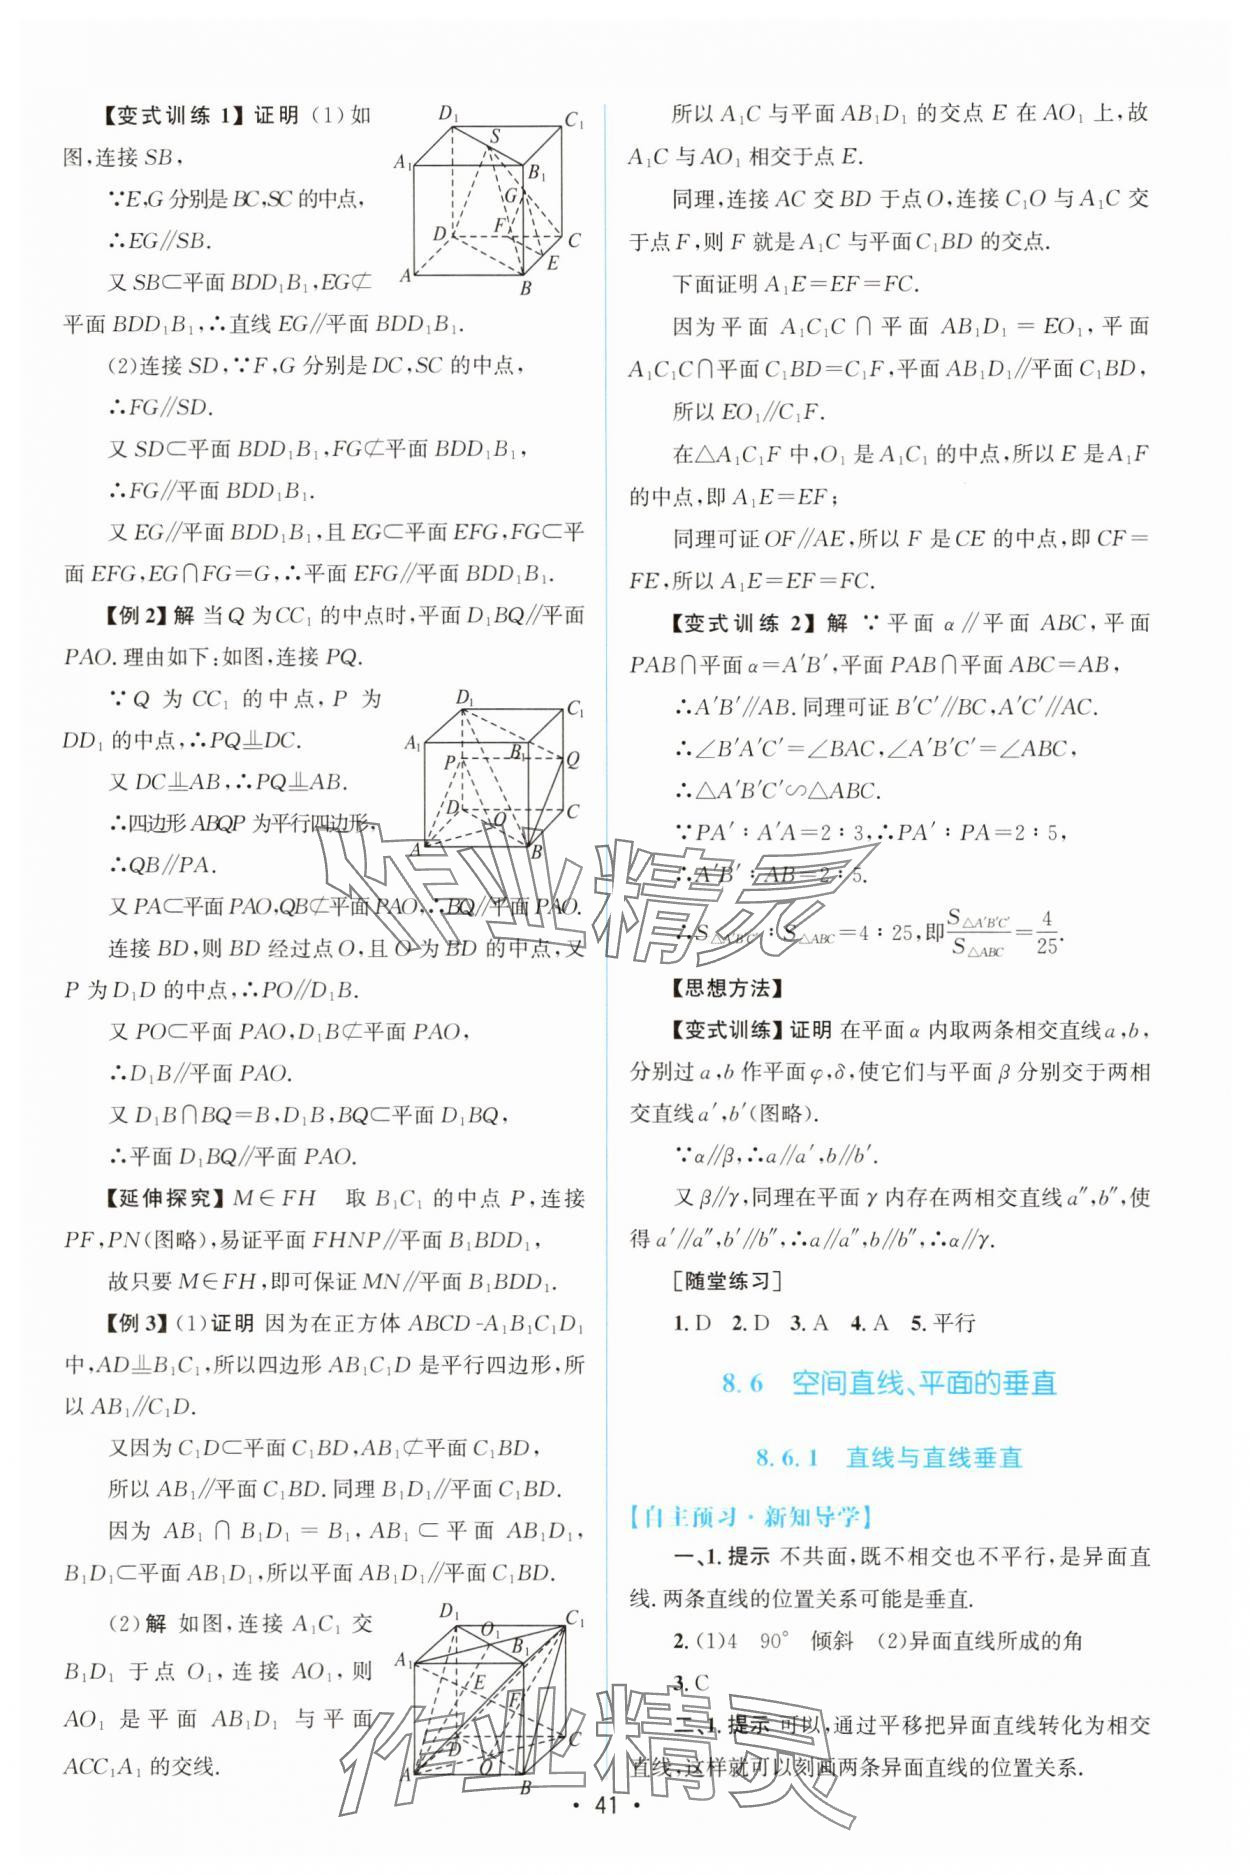 【变式训练1】证明 (1)如
图,连接SB,
∵E,G分别是BC,SC的中点,
∴EG∥SB.
又SB⊂平面BDD₁B₁,EG⊄
平面BDD₁B₁,∴直线EG∥平面BDD₁B₁.
(2)连接SD,∵F,G分别是DC,SC的中点,
∴FG∥SD.
又SD⊂平面BDD₁B₁,FG⊄平面BDD₁B₁,
∴FG∥平面BDD₁B₁.
又EG∥平面BDD₁B₁,且EG⊂平面EFG,FG⊂平
面EFG,EG∩FG=G,∴平面EFG∥平面BDD₁B₁.
【例2】解 当Q为CC₁的中点时,平面D₁BQ∥平面
PAO.理由如下:如图,连接PQ.
∵Q为CC₁的中点,P为
DD₁的中点,∴PQ⫫DC.
又DC⫫AB,∴PQ⫫AB.
∴四边形ABQP为平行四边形,
∴QB∥PA.
又PA⊂平面PAO,QB⊄平面PAO,∴BQ∥平面PAO.
连接BD,则BD经过点O,且O为BD的中点,又
P为D₁D的中点,∴PO∥D₁B.
又PO⊂平面PAO,D₁B⊄平面PAO,
∴D₁B∥平面PAO.
又D₁B∩BQ=B,D₁B,BQ⊂平面D₁BQ,
∴平面D₁BQ∥平面PAO.
【延伸探究】M∈FH 取B₁C₁的中点P,连接
PF,PN(图略),易证平面FHNP∥平面B₁BDD₁,
故只要M∈FH,即可保证MN∥平面B₁BDD₁.
【例3】(1)证明 因为在正方体ABCD-A₁B₁C₁D₁
中,AD⫫B₁C₁,所以四边形AB₁C₁D是平行四边形,所
以AB₁∥C₁D.
又因为C₁D⊂平面C₁BD,AB₁⊄平面C₁BD,
所以AB₁∥平面C₁BD.同理B₁D₁∥平面C₁BD.
因为AB₁∩B₁D₁=B₁,AB₁⊂平面AB₁D₁,
B₁D₁⊂平面AB₁D₁,所以平面AB₁D₁∥平面C₁BD.
(2)解 如图,连接A₁C₁交
B₁D₁于点O₁,连接AO₁,则
AO₁是平面AB₁D₁与平面
ACC₁A₁的交线.
所以A₁C与平面AB₁D₁的交点E在AO₁上,故
A₁C与AO₁相交于点E.
同理,连接AC交BD于点O,连接C₁O与A₁C交
于点F,则F就是A₁C与平面C₁BD的交点.
下面证明A₁E=EF=FC.
因为平面A₁C₁C∩平面AB₁D₁=EO₁,平面
A₁C₁C∩平面C₁BD=C₁F,平面AB₁D₁∥平面C₁BD,
所以EO₁∥C₁F.
在△A₁C₁F中,O₁是A₁C₁的中点,所以E是A₁F
的中点,即A₁E=EF;
同理可证OF∥AE,所以F是CE的中点,即CF=
FE,所以A₁E=EF=FC.
【变式训练2】解 ∵平面α∥平面ABC,平面
PAB∩平面α=A′B′,平面PAB∩平面ABC=AB,
∴A′B′∥AB.同理可证B′C′∥BC,A′C′∥AC.
∴∠B′A′C′=∠BAC,∠A′B′C′=∠ABC,
∴△A′B′C′∽△ABC.
∵PA′∶A′A=2∶3,∴PA′∶PA=2∶5,
∴A′B′∶AB=2∶5.
∴S△A′B′C′∶S△ABC=4∶25,即S△A′B′C′/S△ABC=4/25.
【思想方法】
【变式训练】证明 在平面α内取两条相交直线a,b,
分别过a,b作平面φ,δ,使它们与平面β分别交于两相
交直线a′,b′(图略).
∵α∥β,∴a∥a′,b∥b′.
又β∥γ,同理在平面γ内存在两相交直线a″,b″,使
得a′∥a″,b′∥b″,∴a∥a″,b∥b″,∴α∥γ.
[随堂练习]
1.D 2.D 3.A 4.A 5.平行
8.6 空间直线、平面的垂直
8.6.1 直线与直线垂直
【自主预习·新知导学】
一、1.提示 不共面,既不相交也不平行,是异面直
线.两条直线的位置关系可能是垂直.
2.(1)4 90° 倾斜 (2)异面直线所成的角
3.C
二、1.提示 可以,通过平移把异面直线转化为相交
直线,这样就可以刻画两条异面直线的位置关系.
·41·
作业精灵
作业精灵